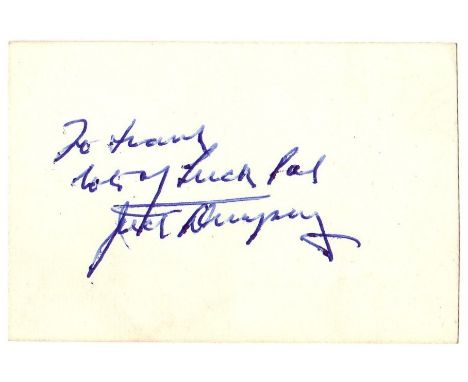 To Frank
lots of Luck Pal
Jack Dempsey